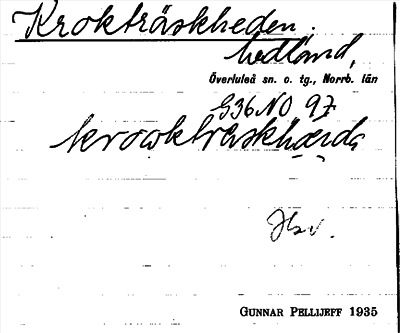 Krokträskheden.
hedland,
Överluleå sn. o. tg., Norrb. län
G36NO 97
Hsv.
GUNNAR PELLIJEFF 1935